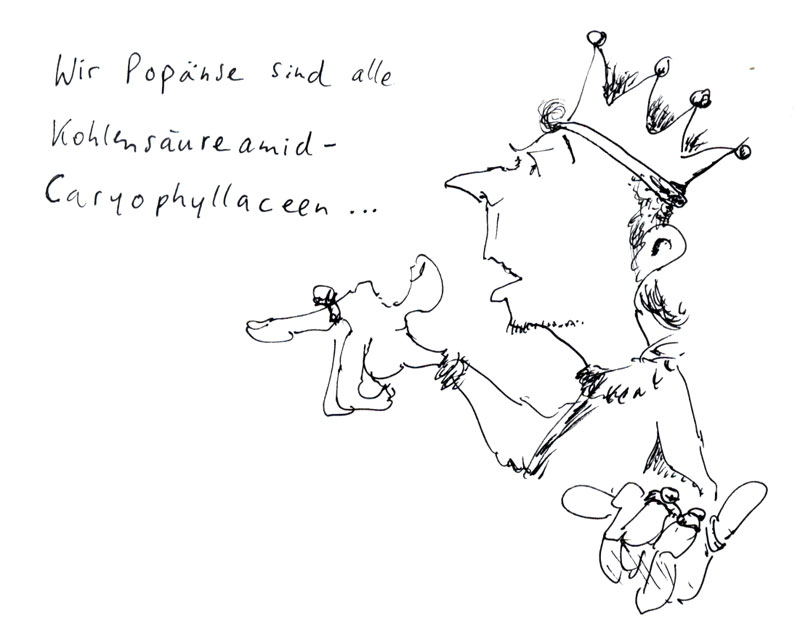 Wir Popänse sind alle
Kohlensäureamid-
Caryophyllaceen ...